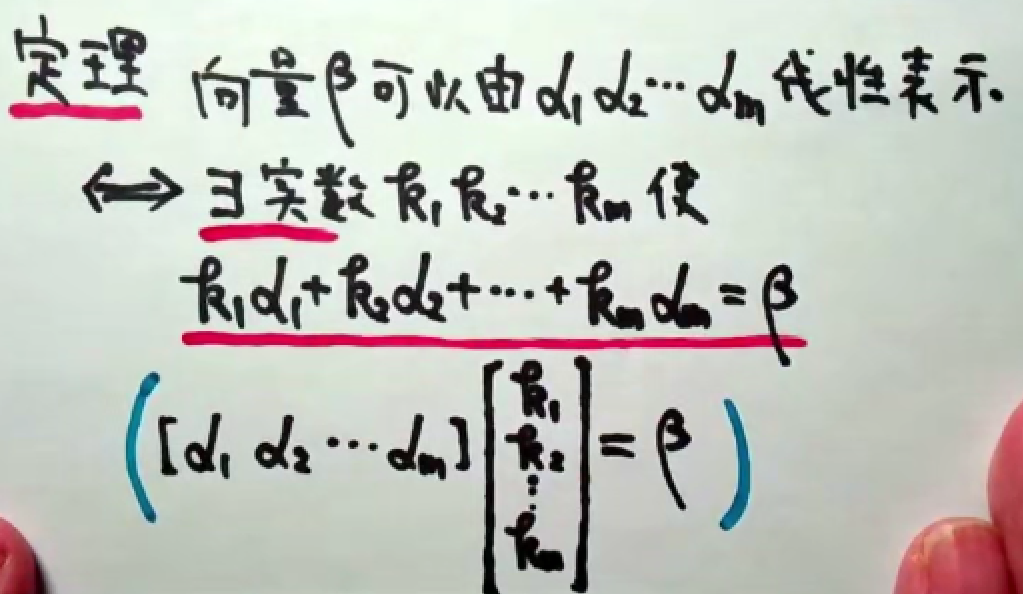 定理 向量β可以由α₁α₂…αₘ线性表示.
⟺ ∃实数 k₁k₂…kₘ 使
k₁α₁+k₂α₂+…+kₘαₘ=β
([α₁ α₂ … αₘ][k₁ k₂ ⋮ kₘ]=β)